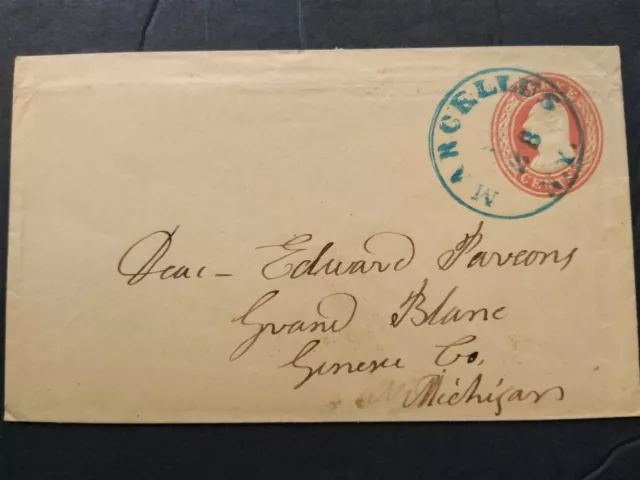 MARCELLUS
N.Y.
CENTS
Deac- Edward Parsons
Grand Blanc
Genesee Co,
Michigan